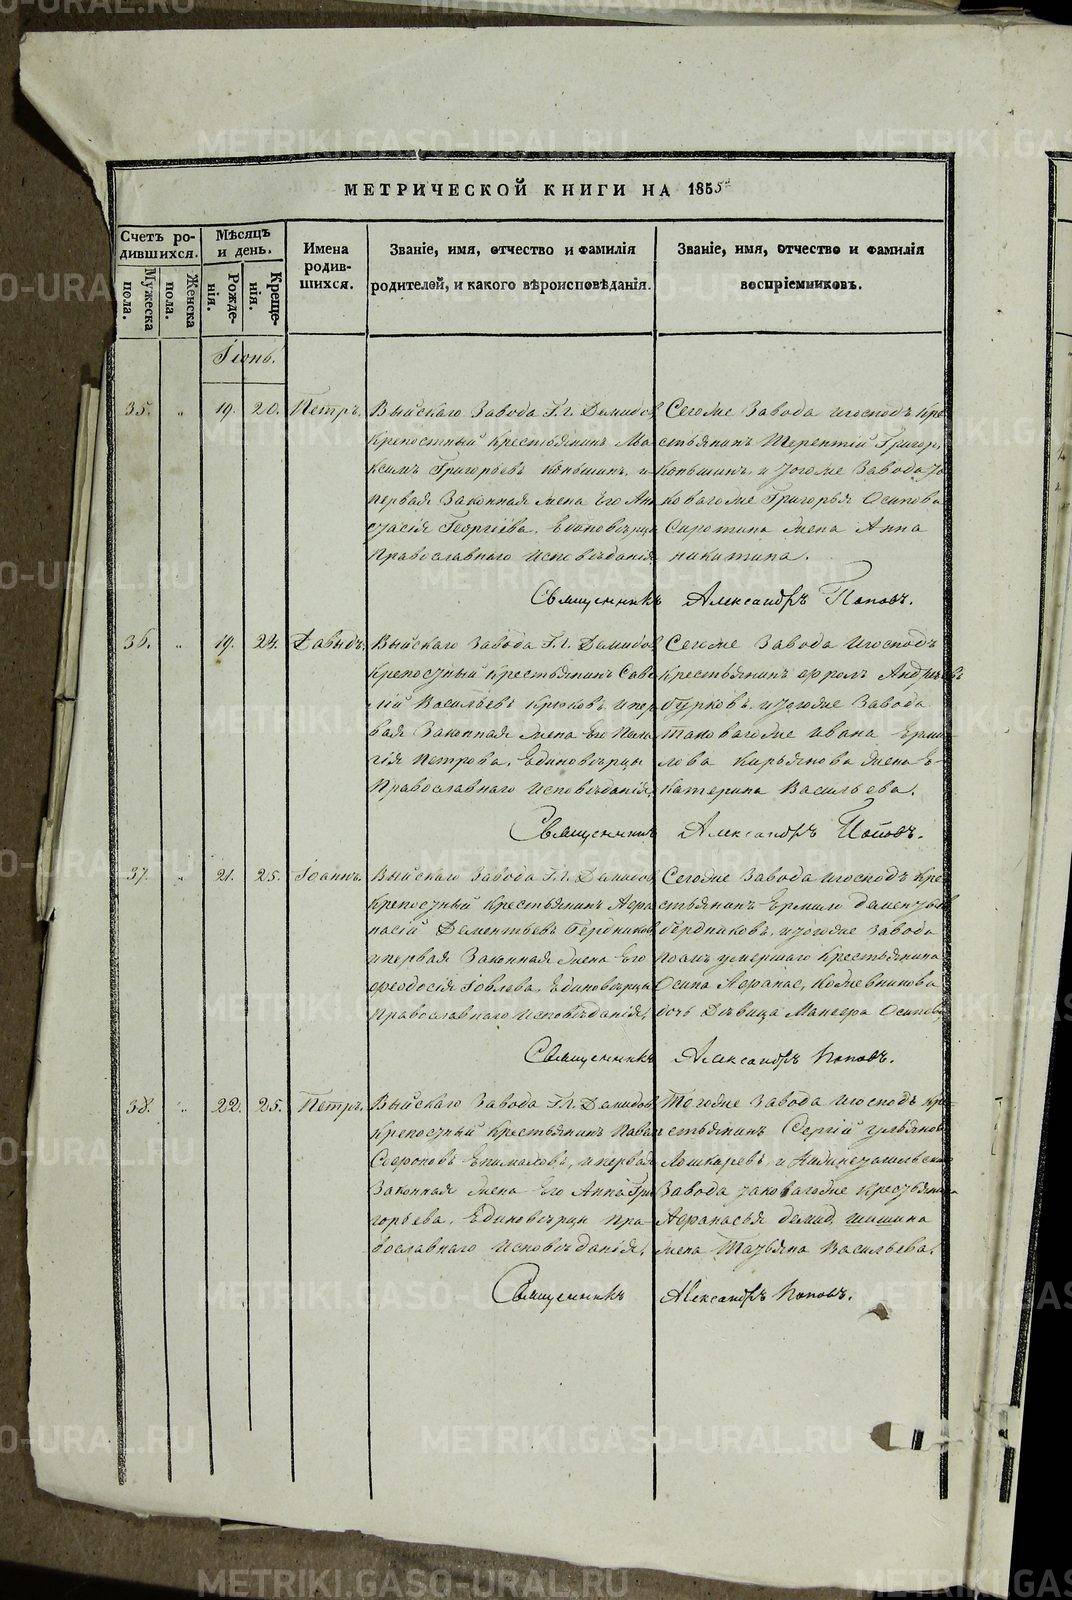 МЕТРИЧЕСКОЙ КНИГИ НА 1855
Счетъ родившихся.
Мѣсяцъ и день.
Имена родившихся.
Званіе, имя, отчество и фамилія родителей, и какого вѣроисповѣданія.
Званіе, имя, отчество и фамилія воспріемниковъ.
Мужеска пола.
Женска пола.
Рожденія.
Крещенія.
Іюнь.
35. „ 19. 20. Петръ.
Выйскаго Завода Г.г. Демидов
крепостный крестьянинъ Ма
ксимъ Григорьевъ Коньшинъ, и
первая Законная жена Его Ана
стасія Георгіева, Единоверцы
Православнаго Исповѣданія
Сегоже Завода игосподъ Кре
стьянинъ Терентій Григор.
Коньшинъ, и тогоже Завода та
коваго же Григорья Осипова
Сиротина жена Анна
никитина.
Священникъ Александръ Поповъ.
36. „ 19. 24. Давыдъ.
Выйскаго Завода Г.г. Демидов
крепостный крестьянинъ Саве
лій Васильевъ Крюковъ, и пер
вая Законная жена Его Пела
гія Петрова, Единоверцы
Православнаго Исповѣданія,
Сегоже Завода игосподъ
крестьянинъ Фролъ Андреевъ
Бурковъ, и тогоже Завода
таковагоже Ивана Ерми
лова Кирьянова жена Е
катерина Васильева.
Священникъ Александръ Поповъ.
37. „ 21. 25. Іоаннъ.
Выйскаго Завода Г.г. Демидов
крепостный крестьянинъ Афа
насій Дементьевъ Бердников
и первая Законная жена Его
Феодосія Іовлева, Единоверцы
Православнаго Исповѣданія,
Сегоже Завода игосподъ Кре
стьянинъ Ермило Дементьев
Бердниковъ, и тогоже Завода
умершаго Крестьянина
Осипа Афанас. Кожевникова
дочь Дѣвица Осипова
Священникъ Александръ Поповъ.
38. „ 22. 25. Петръ.
Выйскаго Завода Г.г. Демидов
крепостный крестьянинъ Павел
Софроновъ, и первая
Законная жена Его Анна Гри
горьева, Единоверцы Пра
вославнаго Исповѣданія,
Тогоже Завода игосподъ кре
стьянинъ Сергій Ульянов
Лошкаревъ, и Нижнетагильскаго
Завода таковагоже Крестьянина
Афанасья Демид. Шишина
жена Татьяна Васильева.
Священникъ Александръ Поповъ.
METRIKI.GASO-URAL.RU